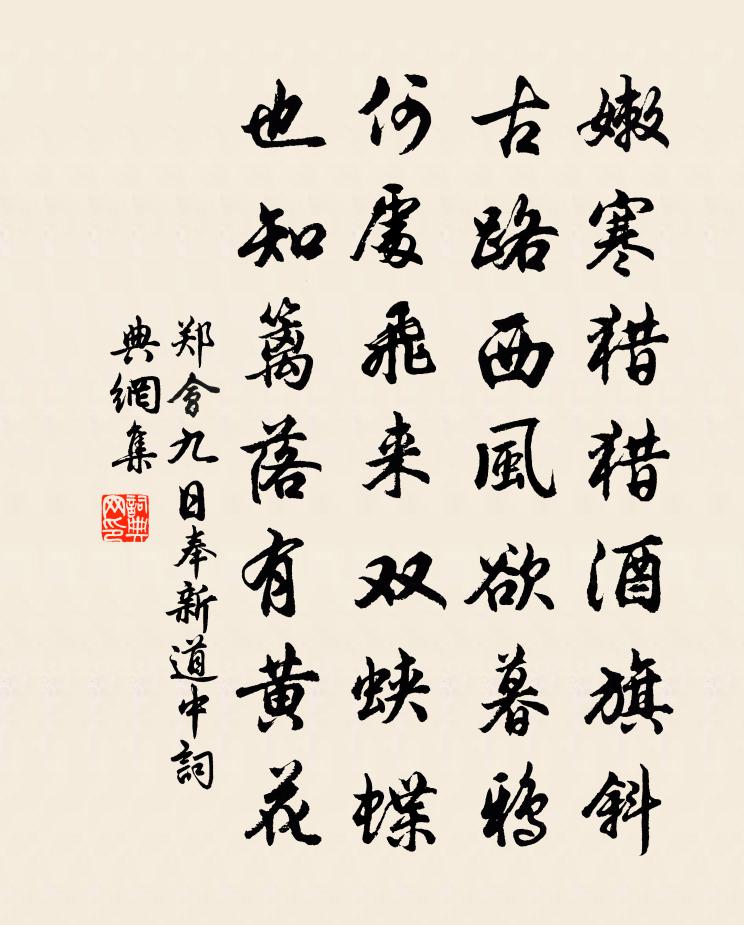 嫩寒猎猎酒旗斜
古路西風欲暮鴉
何處飛来双蛺蝶
也知籬落有黄花
郑會九日奉新道中詞
典網集
詞典
网印